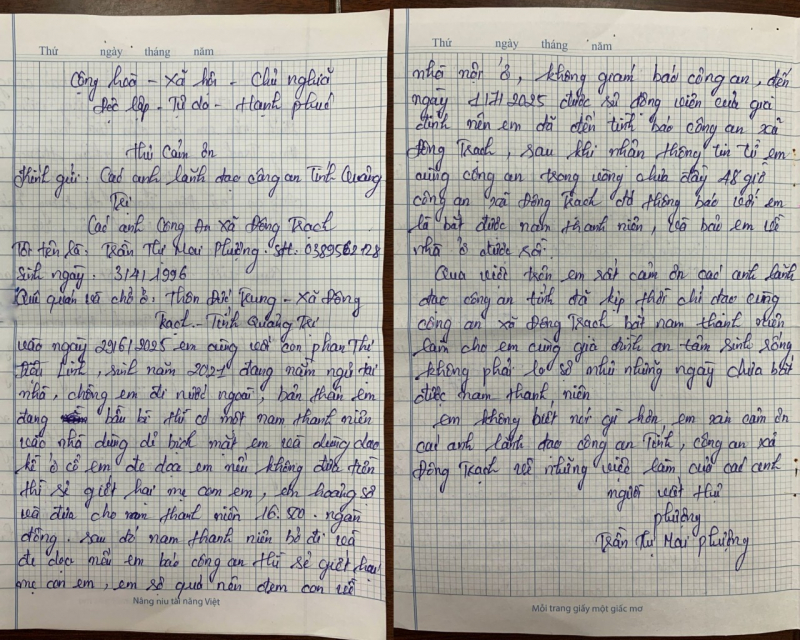 Thứ ngày tháng năm
Cộng hoà - Xã hội - Chủ nghĩa
Độc lập - Tự do - Hạnh phúc
Thư Cảm ơn
Kính gửi: Các anh lãnh đạo công an Tỉnh Quảng
Trị
Các anh Công An xã Đông Trạch
Tôi tên là: Trần Thị Mai Phượng. sđt: 0389562128
Sinh ngày: 3/4/1996
Quê quán và chỗ ở: Thôn Đức Trung - Xã Đông
Trạch - Tỉnh Quảng Trị
vào ngày 29/6/2025 em cùng với con phan Thị
Linh, sinh năm 2021 đang nằm ngủ tại
nhà, chồng em đi nước ngoài, bản thân em
đang bầu bì thì có một nam thanh niên
vào nhà dùng dể bịch mặt em và dùng dao
kề ở cổ em đe doạ em nếu không đưa tiền
thì sẽ giết hai mẹ con em, em hoảng sợ
và đưa cho nam thanh niên 16.500. ngàn
đồng. sau đó nam thanh niên bỏ đi và
đe doạ nếu em báo công an thì sẽ giết hai
mẹ con em, em sợ quá nên đem con về
Nâng niu tài năng Việt
Thứ ngày tháng năm
nhà nội ở, không giám báo công an, đến
ngày 1/7/2025 được sự động viên của gia
đình nên em đã đến trình báo công an xã
Đông Trạch, sau khi nhận thông tin từ em
cùng công an trong vòng chưa đầy 48 giờ
công an xã Đông Trạch đã thông báo với em
là bắt được nam thanh niên, và bảo em về
nhà ở được rồi.
Qua việc trên em rất cảm ơn các anh lãnh
đạo công an tỉnh đã kịp thời chỉ đạo cùng
công an xã Đông Trạch bắt nam thanh niên
làm cho em cùng gia đình an tâm sinh sống
không phải lo sợ như những ngày chưa bắt
được nam thanh niên
em không biết nói gì hơn, em xin cảm ơn
các anh lãnh đạo công an Tỉnh, công an xã
Đông Trạch về những việc làm của các anh
người viết thư
phượng
Trần Thị Mai Phượng
Mỗi trang giấy một giấc mơ